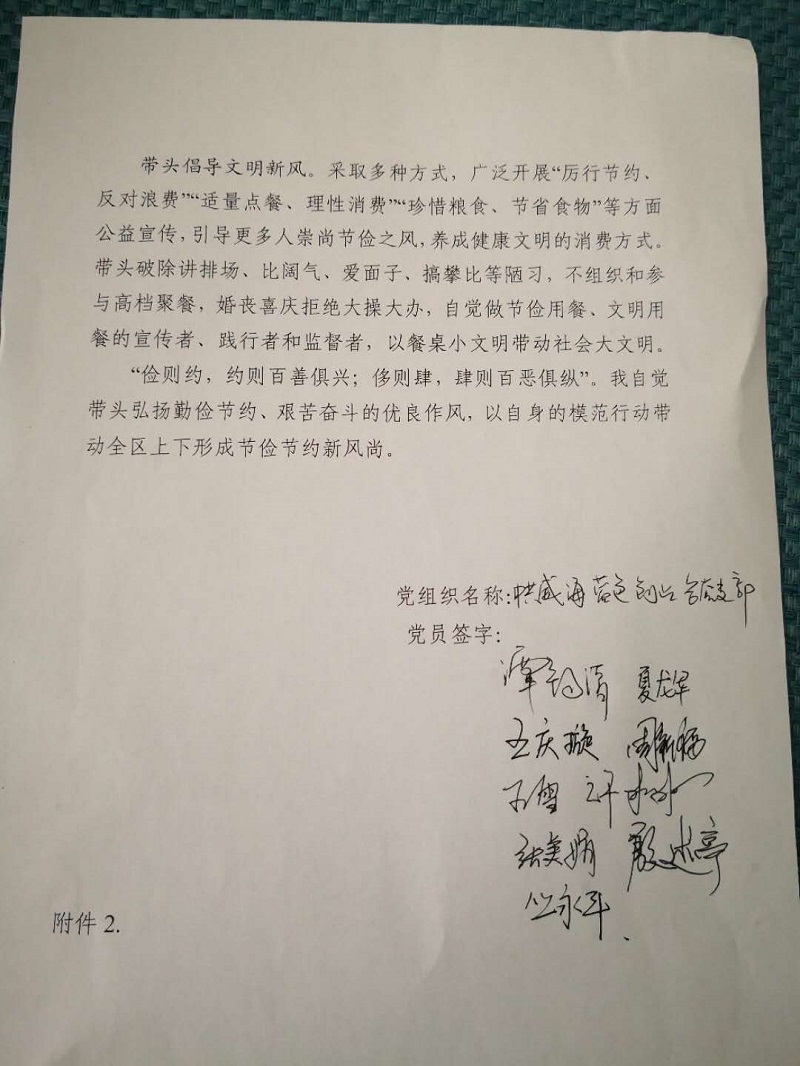 带头倡导文明新风。采取多种方式，广泛开展“厉行节约、
反对浪费”“适量点餐、理性消费”“珍惜粮食、节省食物”等方面
公益宣传，引导更多人崇尚节俭之风，养成健康文明的消费方式。
带头破除讲排场、比阔气、爱面子、搞攀比等陋习，不组织和参
与高档聚餐，婚丧喜庆拒绝大操大办，自觉做节俭用餐、文明用
餐的宣传者、践行者和监督者，以餐桌小文明带动社会大文明。
“俭则约，约则百善俱兴；侈则肆，肆则百恶俱纵”。我自觉
带头弘扬勤俭节约、艰苦奋斗的优良作风，以自身的模范行动带
动全区上下形成节俭节约新风尚。
党组织名称：中共威海蓝色创业谷支部
党员签字：
夏龙军
王庆璇
张美娟
丛永平
附件 2.